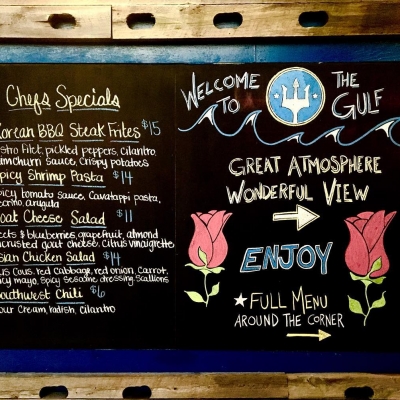 Chefs Specials
Korean BBQ Steak Frites $15
Bistro filet, pickled peppers, cilantro,
crispy potatoes
Spicy Shrimp Pasta $14
Spicy tomato sauce, Cavatappi pasta,
arugula
Goat Cheese Salad $11
Beets & blueberries, grapefruit, almond
encrusted goat cheese, citrus vinaigrette
Asian Chicken Salad $14
Cous cous, red cabbage, red onion, carrot,
spicy mayo, spicy sesame dressing, scallions
Southwest Chili $6
Sour cream, radish, cilantro
WELCOME
TO
THE
GULF
GREAT ATMOSPHERE
WONDERFUL VIEW
ENJOY
FULL MENU
AROUND THE CORNER